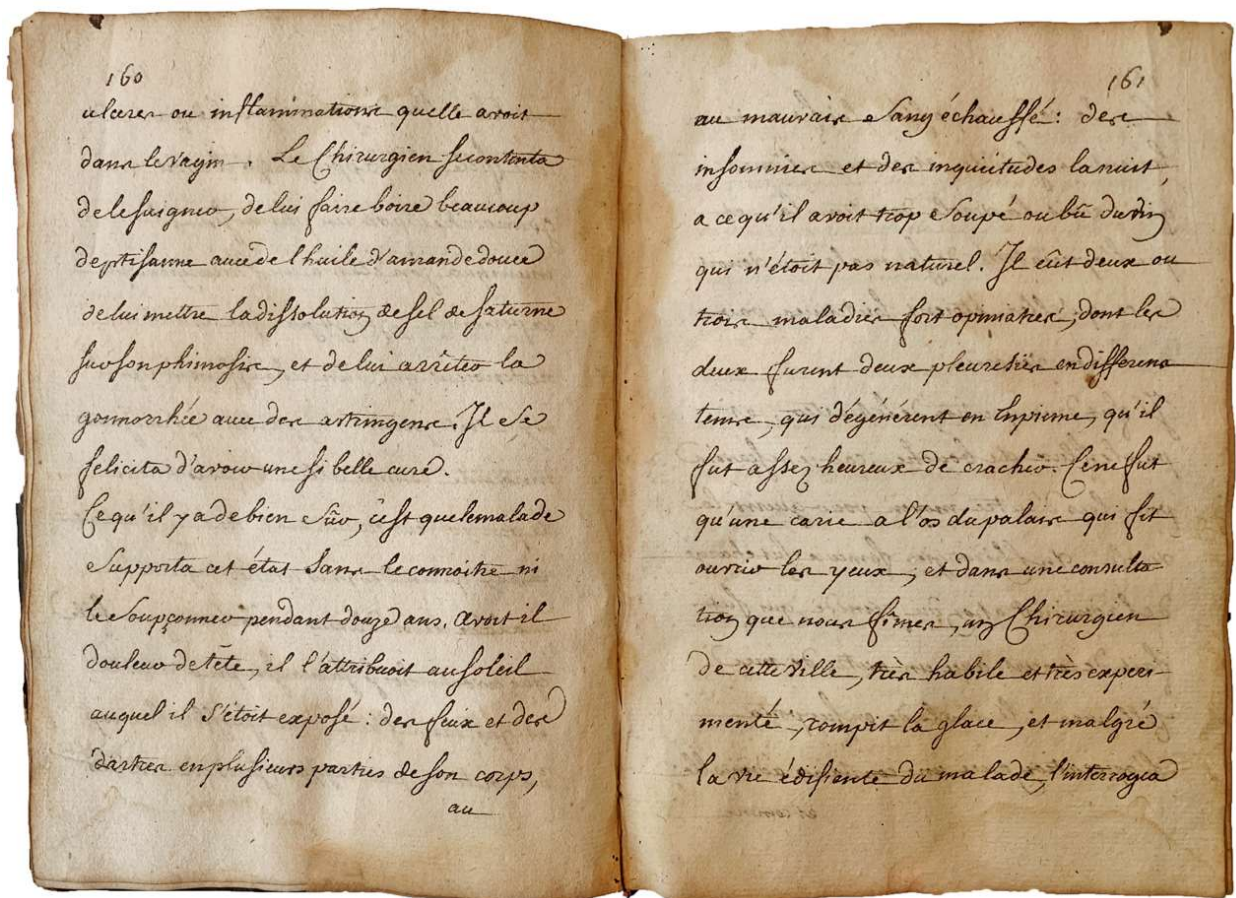 160
ulceres ou inflammations quelle avoit
dans le vagin. Le Chirurgien se contenta
de le saigner, de lui faire boire beaucoup
de ptisanne avec de l'huile d'amande douce
de lui mettre la dissolution de sel de saturne
sur son phimosis, et de lui arrêter la
gonnorrhée avec des astringens. Il se
felicita d'avoir une si belle cure.
Ce qu'il y a de bien sûr, c'est que le malade
supporta cet état sans le connoitre ni
le soupçonner pendant douze ans. avoit il
douleur de tête, il l'attribuoit au soleil
auquel il s'étoit exposé : des feux et des
dartres en plusieurs parties de son corps,
au
161
au mauvais sang échauffé : des
insomnies et des inquiétudes la nuit,
a ce qu'il avoit trop soupé ou bû du vin
qui n'étoit pas naturel. Il eût deux ou
trois maladies fort opiniatres, dont les
deux furent deux pleuresies en differens
tems, qui dégénérent en Empieme, qu'il
fut assez heureux de cracher. Ce ne fut
qu'une carie a l'os du palais qui fit
ouvrir les yeux, et dans une consulta
tion que nous fimes, un Chirurgien
de cette ville, très habile et très experi-
menté, rompit la glace, et malgré
la vie édifiente du malade, l'interrogea